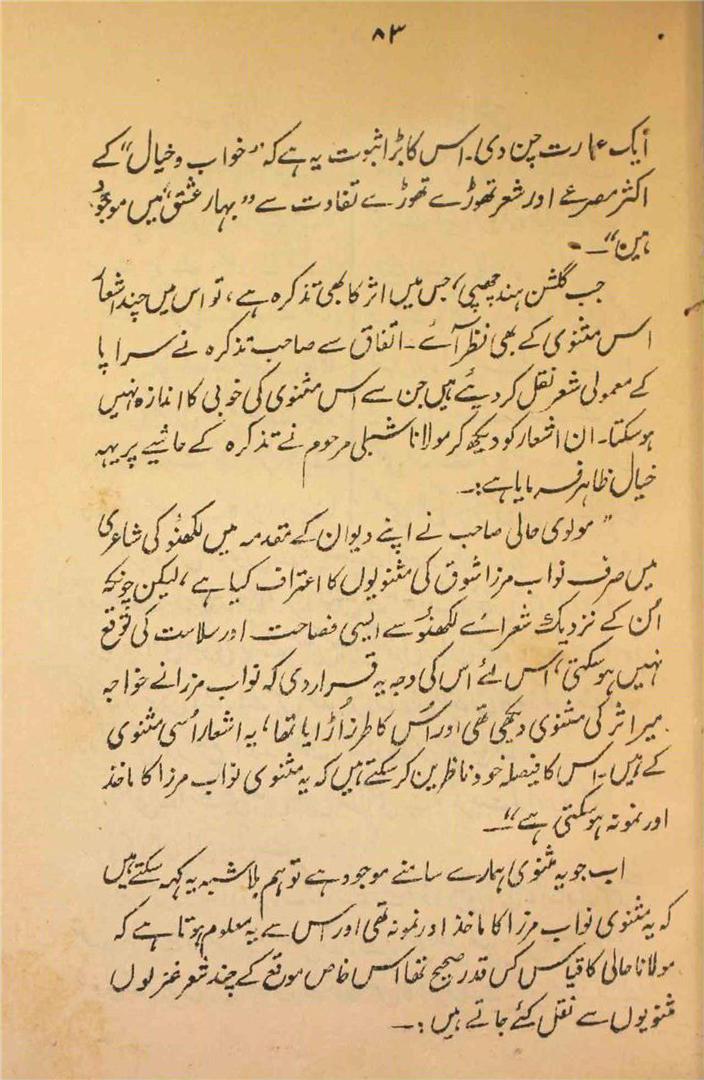 ۸۳
ایک عمارت چن دی۔ اس کا بڑا ثبوت یہ ہے کہ "خواب و خیال" کے
اکثر مصرعے اور شعر تھوڑے تھوڑے تفاوت سے "بہار عشق" میں موجود
ہین"۔
جب گلشن ہند چھپی، جس میں اثر کا بھی تذکرہ ہے، تو اس میں چند اشعار
اس مثنوی کے بھی نظر آئے۔ اتفاق سے صاحب تذکرہ نے سراپا
کے معمولی شعر نقل کر دیئے ہیں جن سے اس مثنوی کی خوبی کا اندازہ نہیں
ہوسکتا۔ ان اشعار کو دیکھ کر مولانا شبلی مرحوم نے تذکرہ کے حاشیے پر یہہ
خیال ظاہر فرمایا ہے:۔
"مولوی حالی صاحب نے اپنے دیوان کے مقدمہ میں لکھنؤ کی شاعری
میں صرف نواب مرزا شوق کی مثنویوں کا اعتراف کیا ہے، لیکن چونکہ
اُن کے نزدیک شعرائے لکھنؤ سے ایسی فصاحت اور سلاست کی توقع
نہیں ہوسکتی، اس لئے اس کی وجہ یہ قرار دی کہ نواب مرزا نے خواجہ
میر اثر کی مثنوی دیکھی تھی اور اُس کا طرز اُڑایا تھا، یہ اشعار اُسی مثنوی
کے ہیں۔ اس کا فیصلہ خود ناظرین کرسکتے ہیں کہ یہ مثنوی نواب مرزا کا ماخذ
اور نمونہ ہوسکتی ہے"۔
اب جو یہ مثنوی ہمارے سامنے موجود ہے تو ہم بلا شبہ یہ کہہ سکتے ہیں
کہ یہ مثنوی نواب مرزا کا ماخذ اور نمونہ تھی اور اس سے یہ معلوم ہوتا ہے کہ
مولانا حالی کا قیاس کس قدر صحیح تھا اس خاص موقع کے چند شعر غزلوں
مثنویوں سے نقل کئے جاتے ہیں:۔